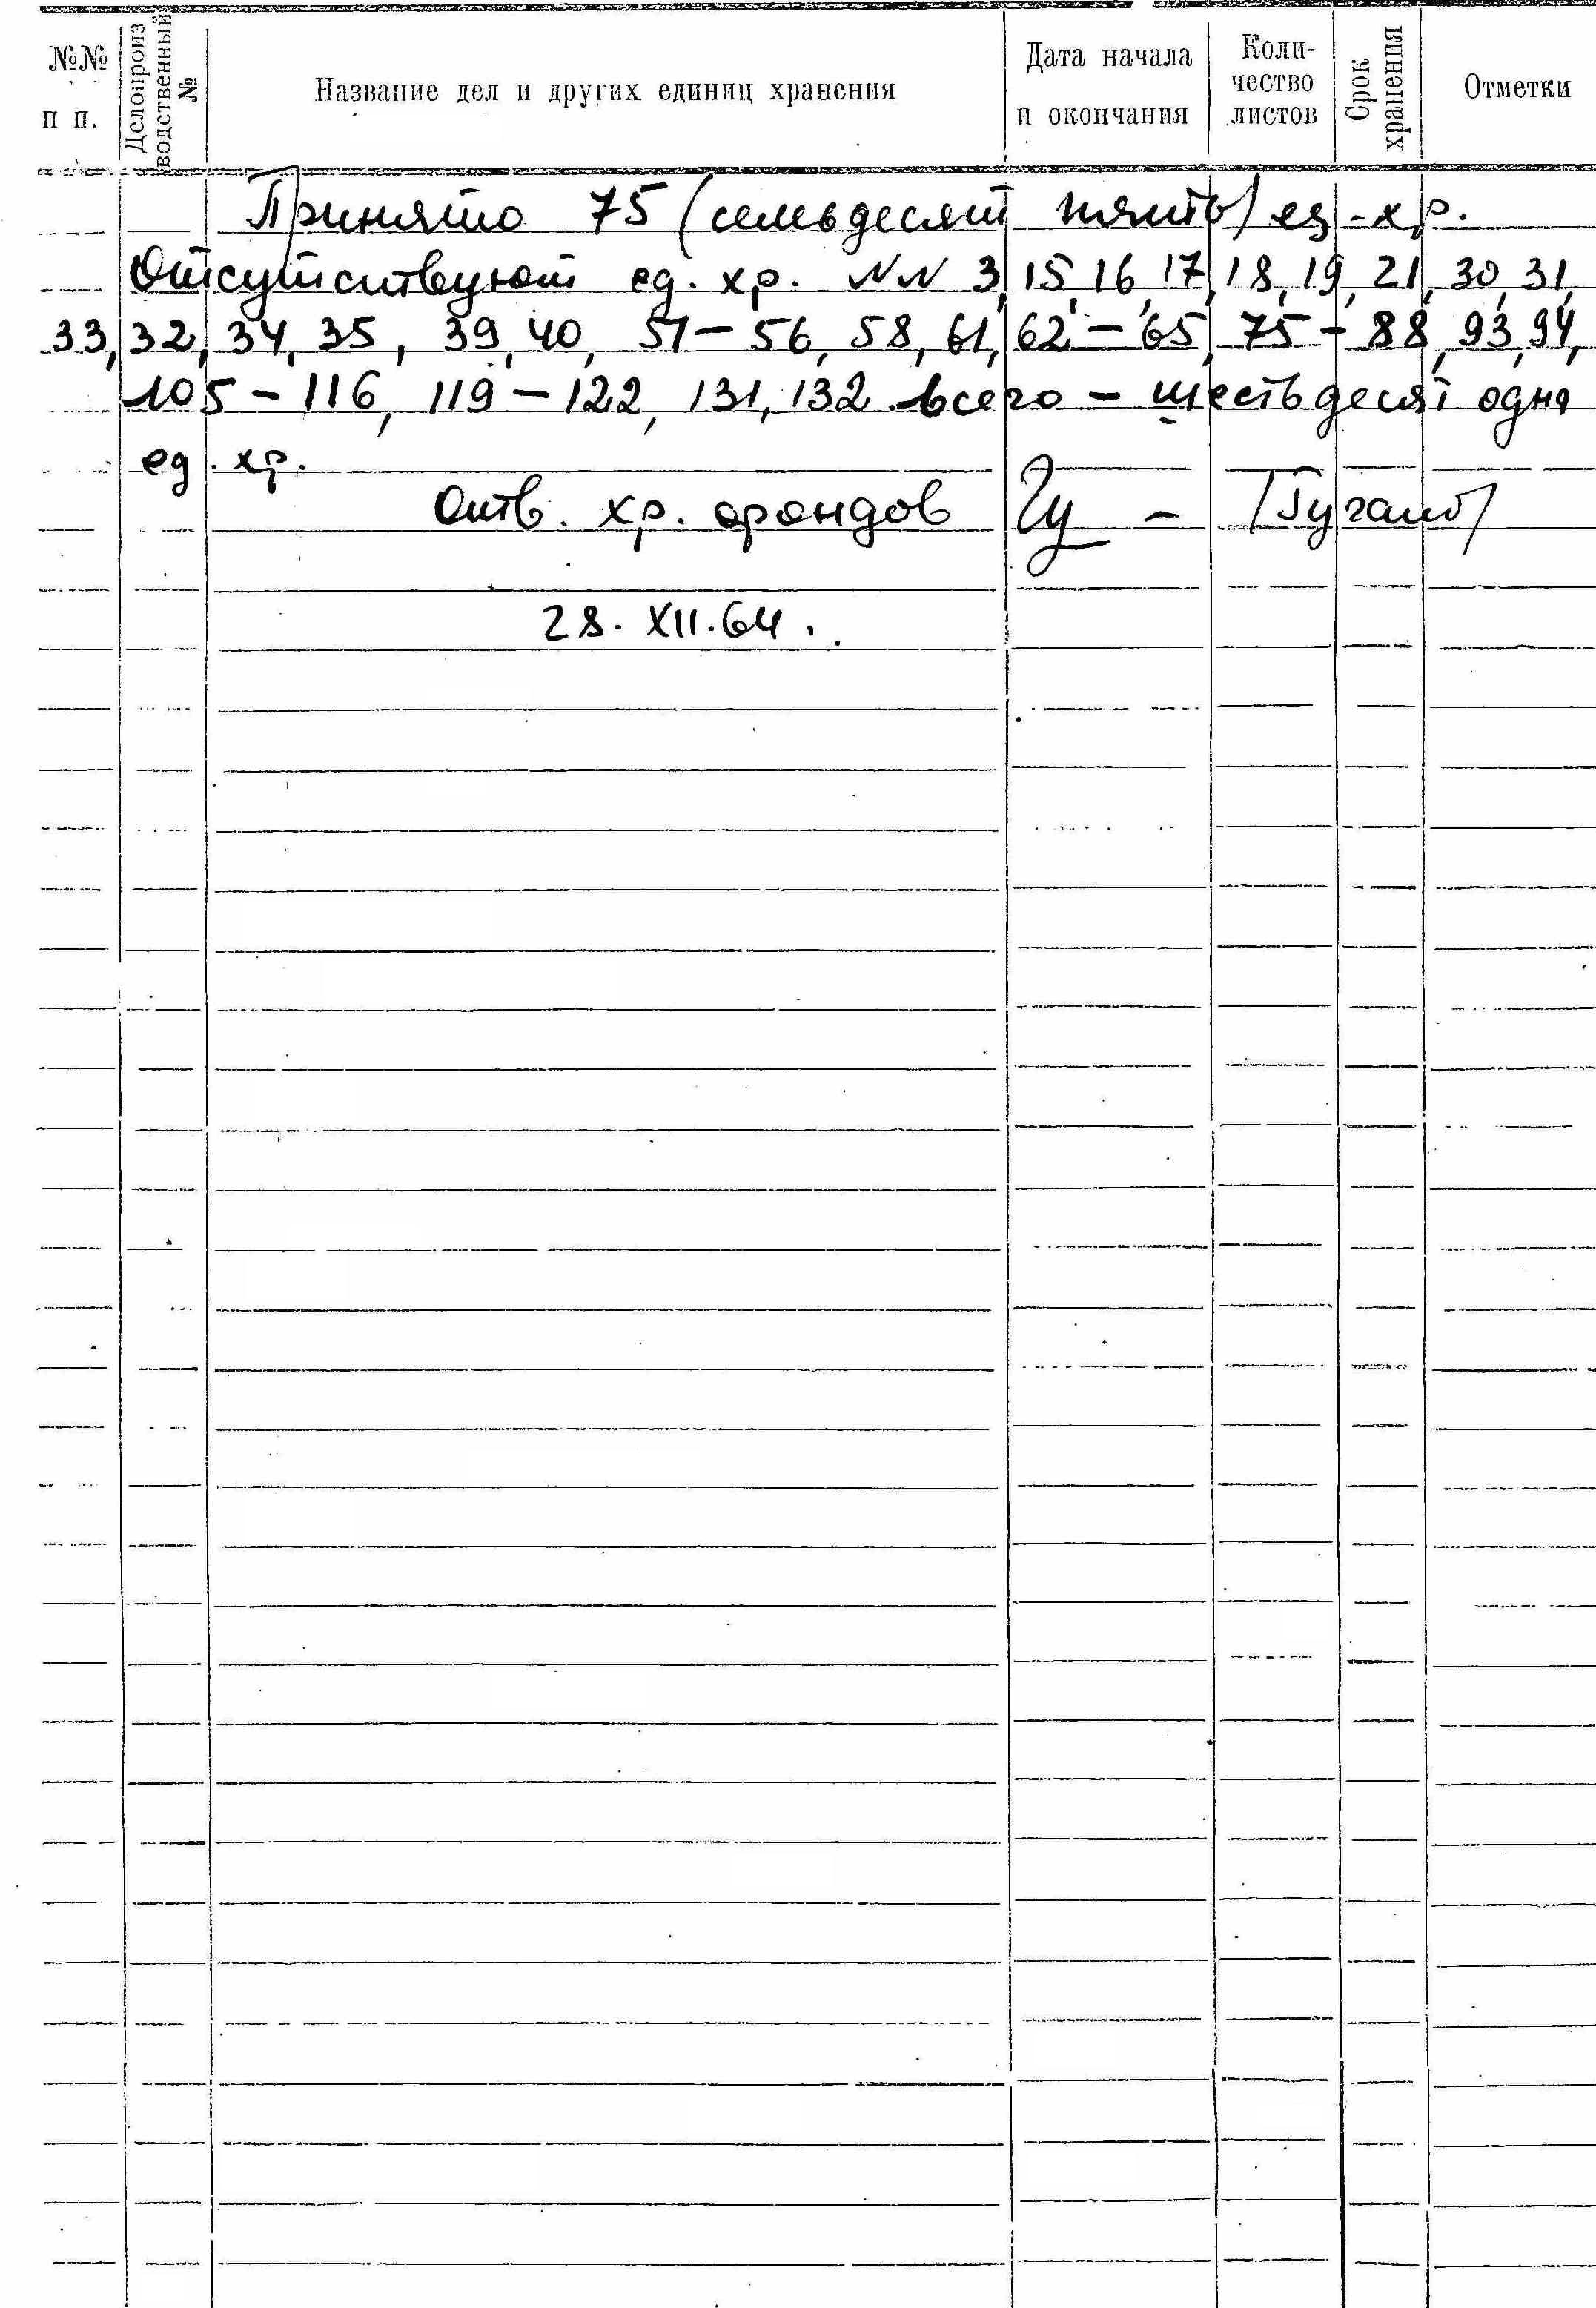 №№ п п.
Делопроиз водственный №
Название дел и других единиц хранения
Дата начала и окончания
Коли- чество листов
Срок хранения
Отметки
Принято 75 (семьдесят пять) ед-хр.
Отсутствуют ед. хр. NN 3, 15, 16, 17, 18, 19, 21, 30, 31,
33, 32, 34, 35, 39, 40, 51-56, 58, 61, 62-65, 75-88, 93, 94,
105-116, 119-122, 131, 132. всего - шестьдесят одна
ед. хр.
Отв. хр. фондов
28.XII.64.